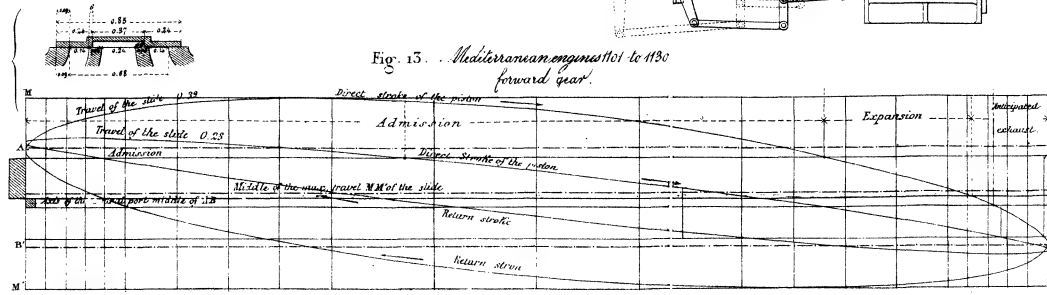 0.85
0.37
0.24
0.24
0.68
Fig. 13. . Mediterranean engines 1101 to 1130
forward gear.
M
Travel of the slide 0.39
Direct stroke of the piston
Admission
Expansion
Anticipated
exhaust.
Travel of the slide 0.28
A
Admission
Direct Stroke of the piston
Middle of the max. travel MM' of the slide
Axis of the
port middle of AB
Return stroke
B'
Return stron
M'